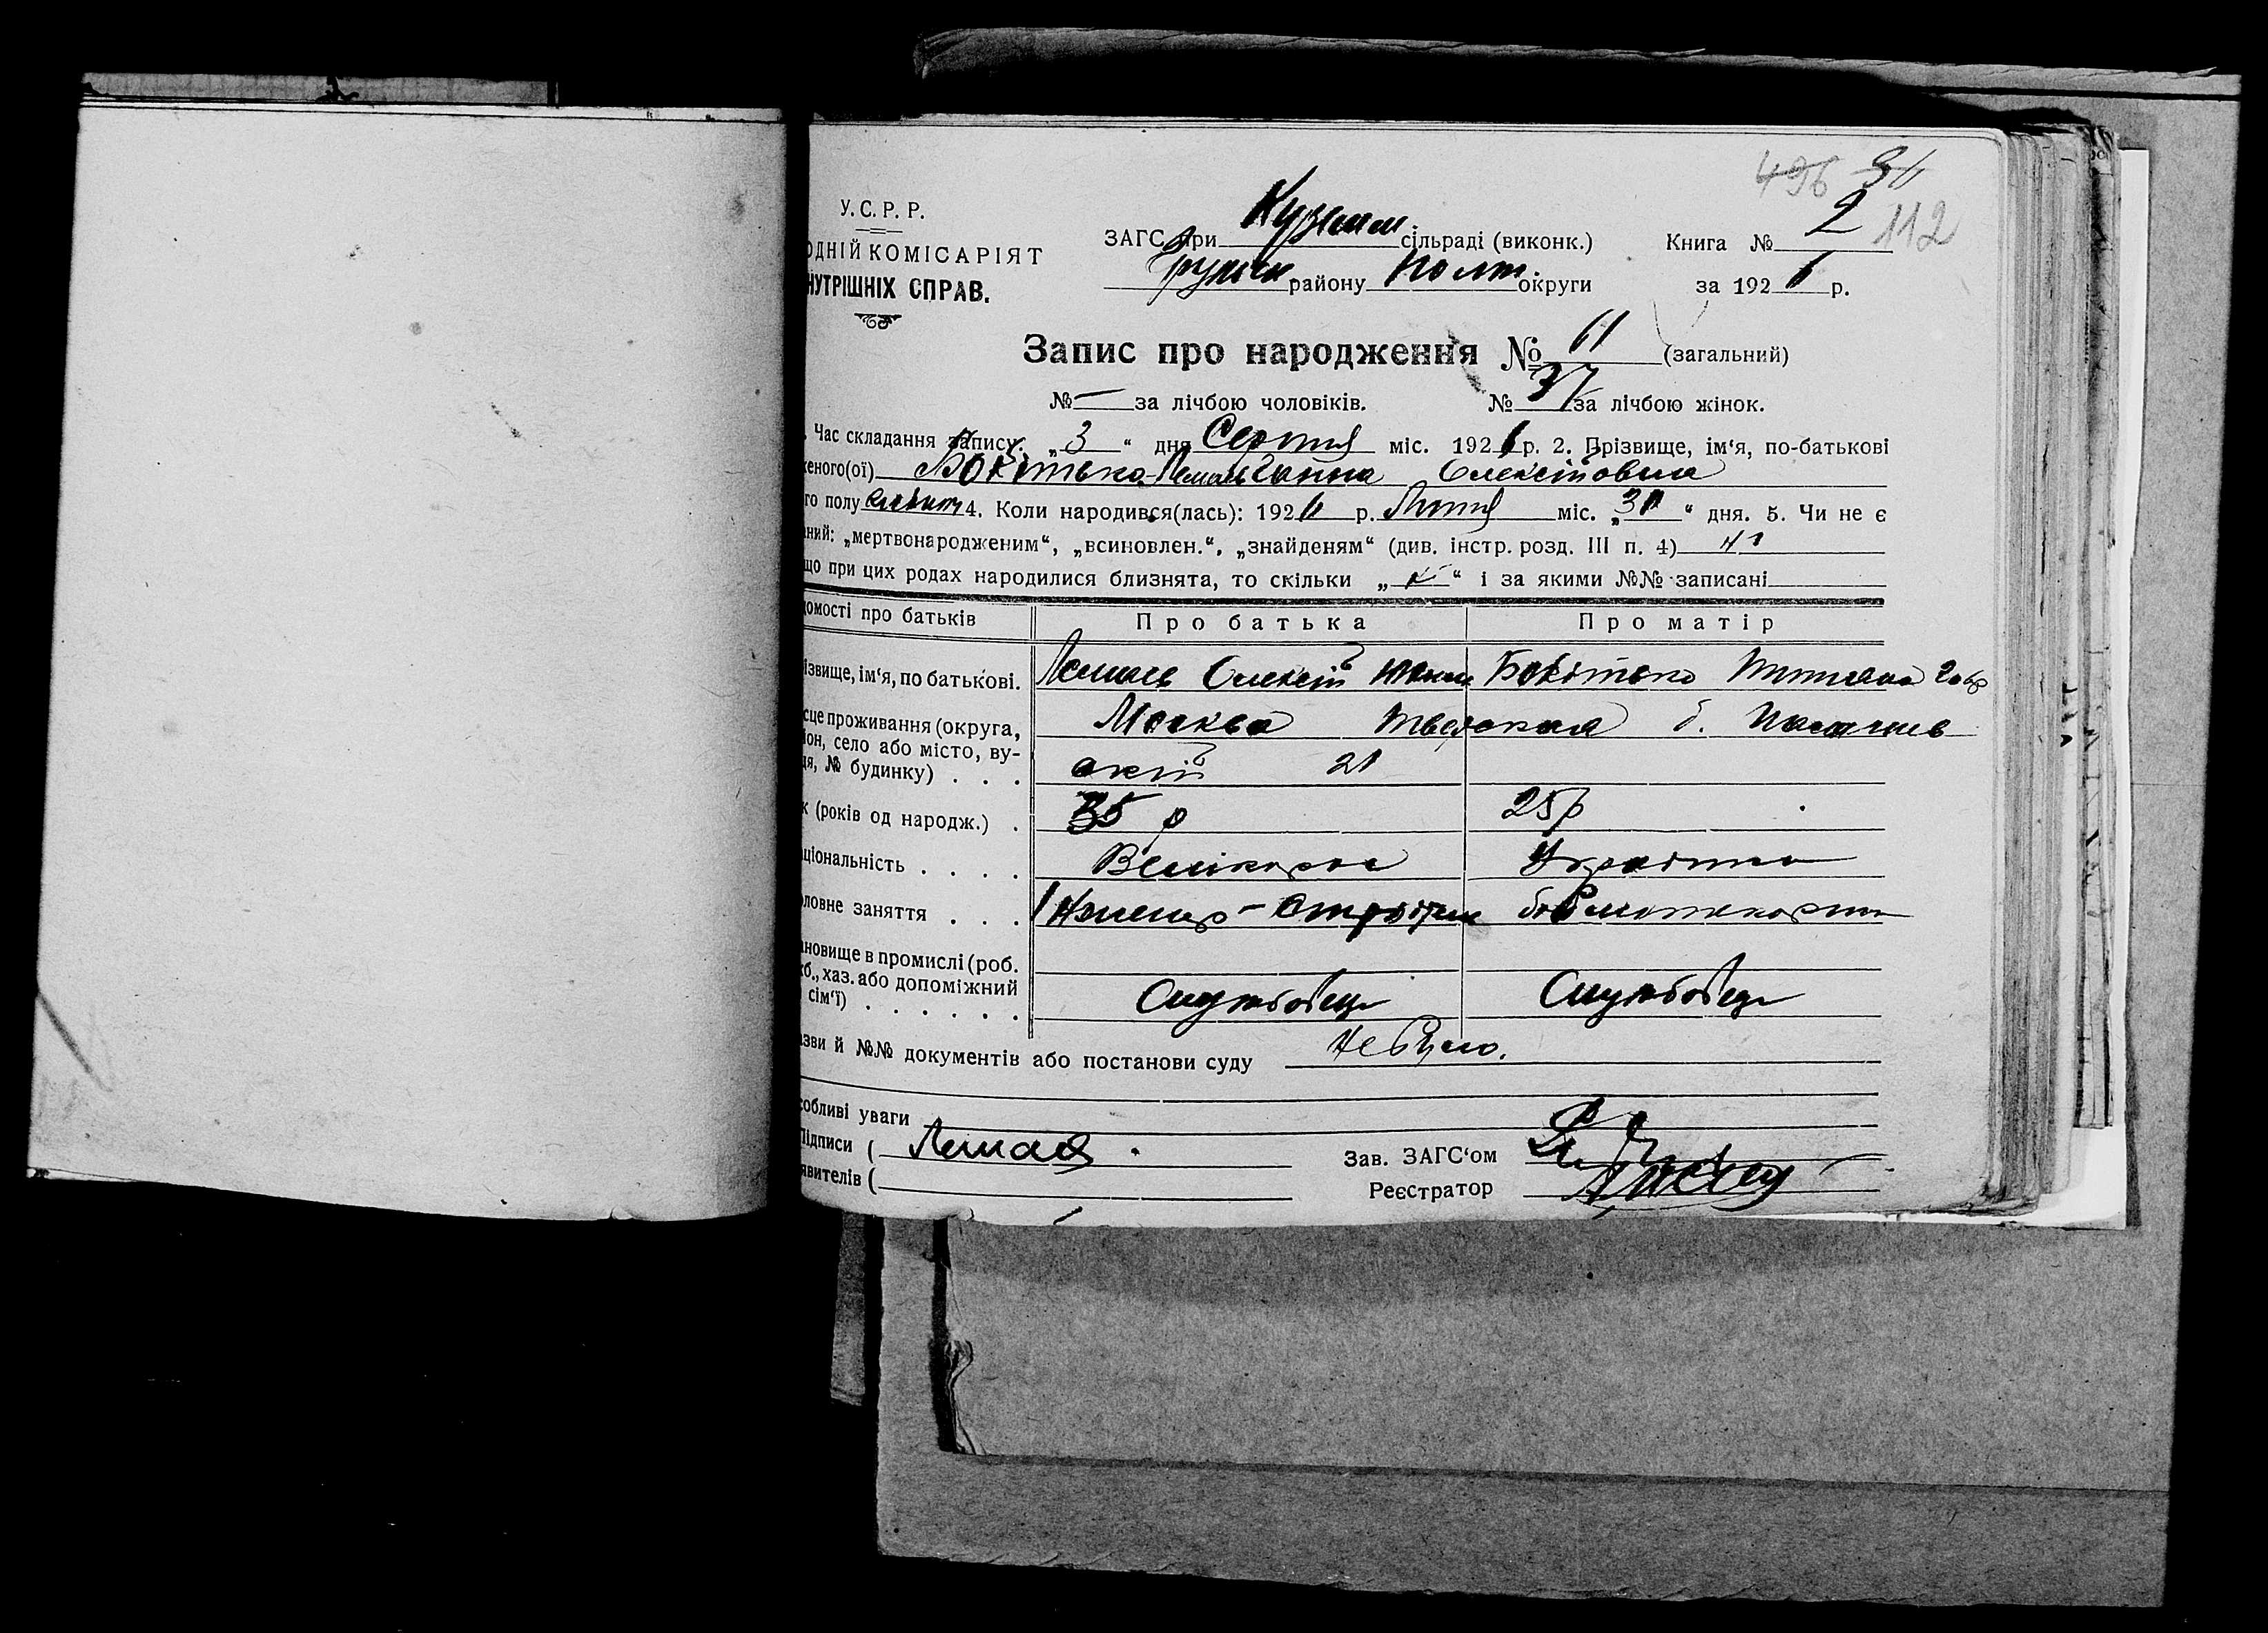 496 31
У. С. Р. Р.
ОДНІЙ КОМІСАРІЯТ
НУТРІШНІХ СПРАВ.
ЗАГС при Куземи. сільраді (виконк.)
Книга № 2 112
району Полт. округи
за 1926 р.
Запис про народження № 61 (загальний)
№ — за лічбою чоловіків. № 37 за лічбою жінок.
. Час складання запису. „3“ дня Серпня міс. 1926 р. 2. Прізвище, ім‘я, по-батькові
женого(ої) Бокітько-Ганна Олексійовна
го полу 4. Коли народився(лась): 1926 р. міс. „“ дня. 5. Чи не є
аний: „мертвонародженим“, „всиновлен.“, „знайденям“ (див. інстр. розд. III п. 4) ні
що при цих родах народилися близнята, то скільки „“ і за якими №№ записані
домості про батьків
Про батька
Про матір
ізвище, ім‘я, по батькові.
Олексій Бокітько Титяна Гавр
сце проживання (округа,
йон, село або місто, ву-
ця, № будинку) . . .
Москва Тверская б.
21
к (років од народж.) .
35 р 25 р
аціональність . . . .
Великорос Українка
оловне заняття . . .
Інженер - Строітель бібліотекарша
ановище в промислі (роб.
жб., хаз. або допоміжний
сім‘ї) . . . . . .
Службовець Службовець
азви й №№ документів або постанови суду Не було.
собливі уваги
Підписи (
явителів (
Зав. ЗАГС‘ом
Реєстратор